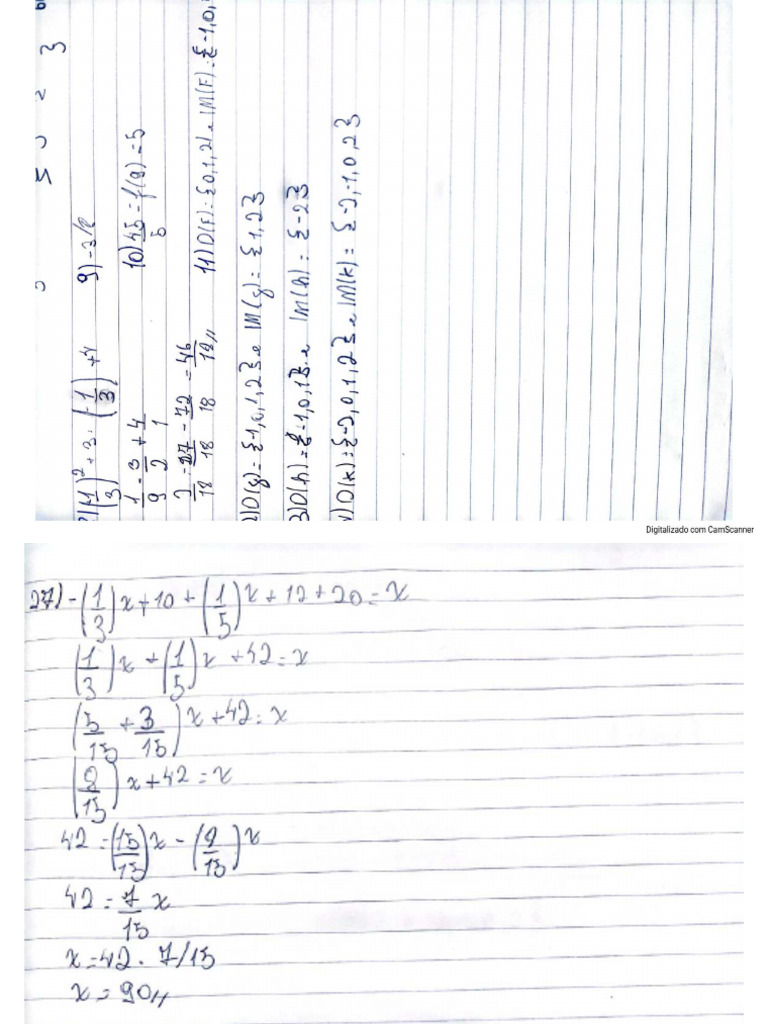 (1/3)² + 3 · (-1/3) + 4
1/9 - 3/2 + 4/1
2/18 - 27/18 - 72/18 = 46/18
9) -3/2
10) 45/5 = f(9) = 5
11) D(F) = {0, 1, 2} e IM(F) = {-1, 0,
2) D(g) = {-1, 0, 1, 2} e IM(g) = {1, 2}
3) D(h) = {-1, 0, 1} e IM(h) = {-2}
D(k) = {-2, 0, 1, 2} e IM(k) = {-2, -1, 0, 2}
Digitalizado com CamScanner
27) -(1/3)x + 10 + (1/5)x + 12 + 20 = x
(1/3)x + (1/5)x + 42 = x
(5/15 + 3/15)x + 42 = x
(8/15)x + 42 = x
42 = (15/15)x - (8/15)x
42 = 7/15 x
x = 42 · 7/15
x = 90//